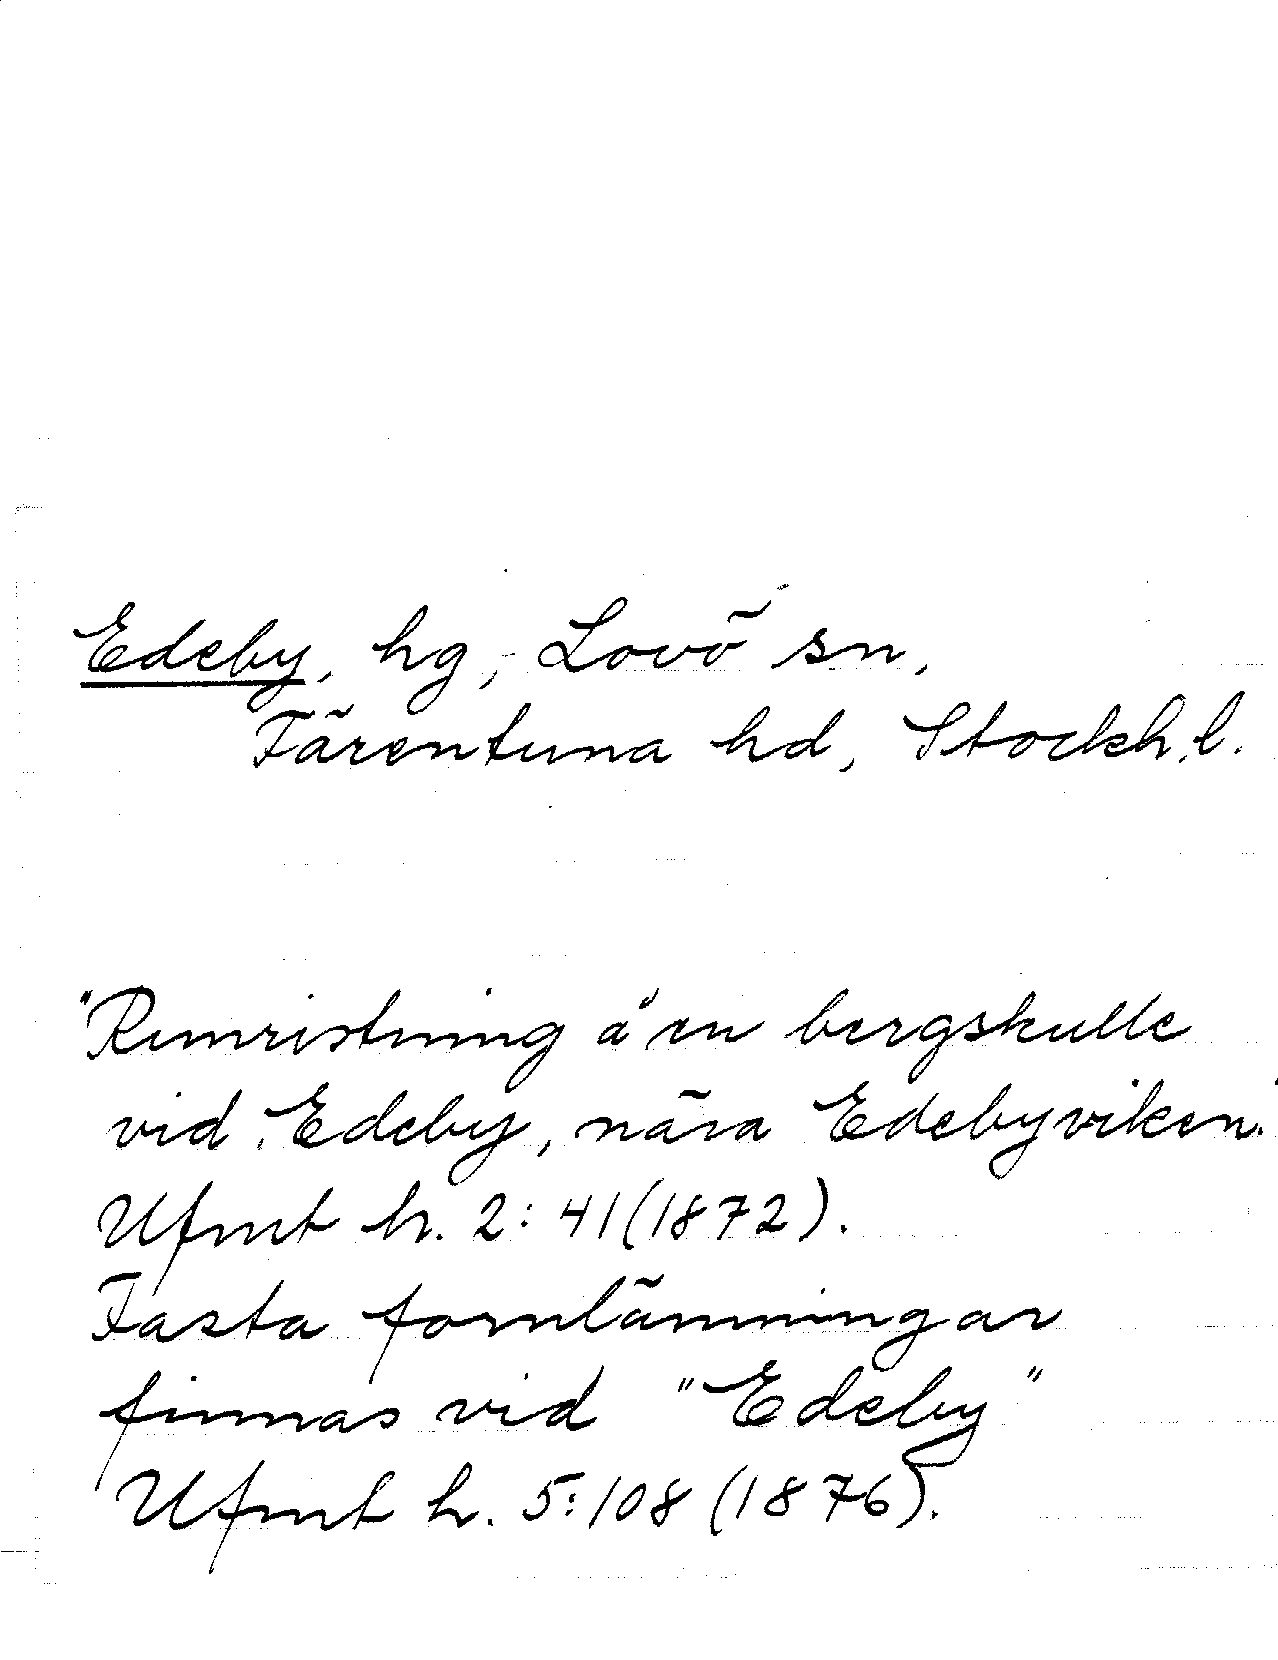 Edeby, hg, Lovö sn,
Färentuna hd, Stockh.l.
"Runristning å en bergskulle
vid Edeby, nära Edebyviken."
Ufmt h. 2:41(1872).
Fasta fornlämningar
finnas vid "Edeby"
Ufmt h. 5:108 (1876).